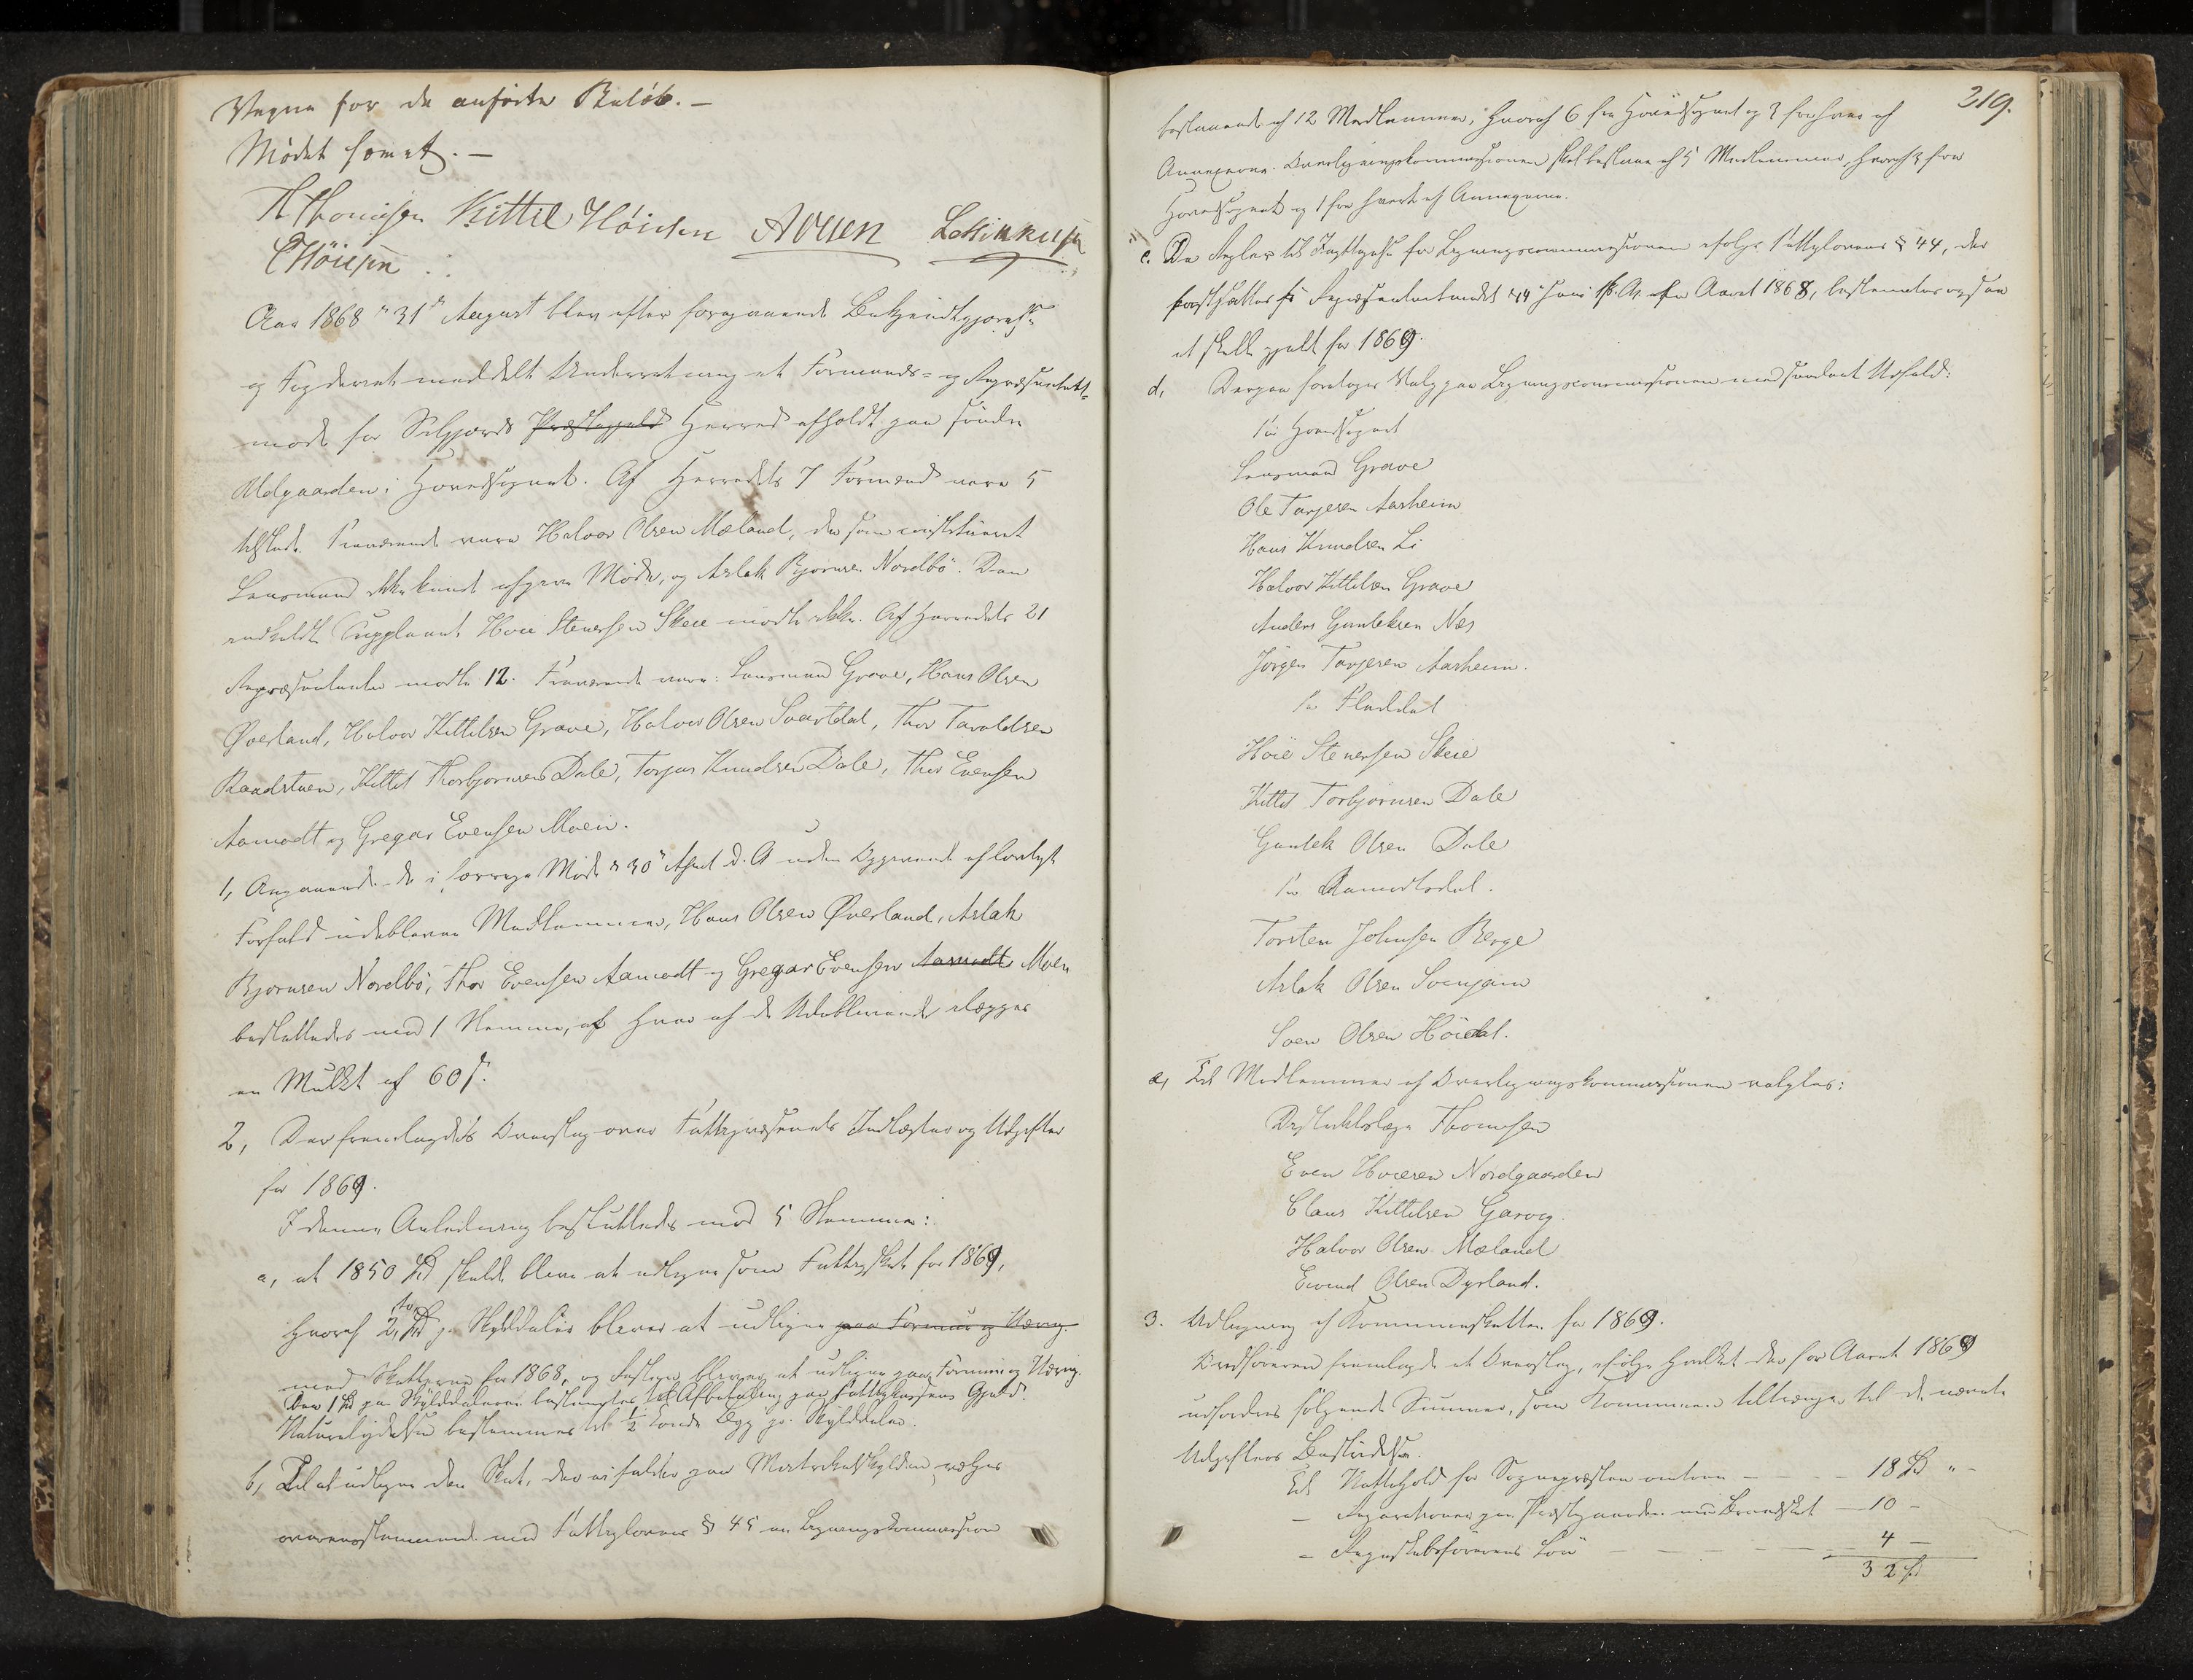 Vegne for de anførte Beløb. –
Mødet hævet. –
Thomesen Kittil Høidsen AOlsen
Aar 1868 "31" August blev efter foregaaende Bekjendtgjørelse
og Fogderiet meddelt Underretning et Formands- og Repræsentant-
møde for Seljords Præstegjeld Herred afholdt paa søndre
Uldgaarden i Hovedsognet. Af Herredets 7 Formænd vare 5
tilstede. Fraværende vare Halvor Olsen Mæland, der som constitueret
Lensmand ikke kunde afgive Møde, og Aslak Bjørnsen Nordbø. Den
indkaldte Suppleant Hoie Stenersen Skeie mødte ikke. Af Herredets 21
Repræsentanter mødte 12. Fraværende vare: Lensmand Grave, Hans Olsen
Øverland, Halvor Kittilsen Grave, Halvor Olsen Svartdal, Thor Taraldsen
Raadstuen, Kittil Thorbjørnsen Dale, Torjus Knudsen Dale, Thor Evensen
Aamodt og Gregar Evensen Moen.
1, Angaaende de i forrige Møde "30" April d. A uden Opgivende af lovligt
Forfald udeblevne Medlemmer, Hans Olsen Øverland, Aslak
Bjørnsen Nordbø, Thor Evensen Aamodt og Gregar Evensen Aamodt Moen
besluttedes med 1 Stemme, at hver af de Udeblivende ilægges
en Mulkt af 60 s.
2, Der fremlagdes Overslag over Fattigvæsenets Indtægter og Udgifter
for 1869.
I denne Anledning besluttedes med 5 Stemmer:
a, at 1850 Spd skulde blive at udligne som Fattigskat for 1869,
hvoraf 2, to Spd pr. Skylddaler bliver at udligne paa Formue og Næring.
med Skatterne for 1868, og Resten bliver at udligne paa Formue og Næring.
Den 1 Spd pr. Skylddaleren bestemtes til Afbetaling paa Fattigkassens Gjæld.
Naturalydelsen bestemmes til ½ Tønde Byg pr. Skylddaler.
b, Til at udligne den Skat, der ei falder paa Matrikulskylden vælges
overensstemmende med Fattiglovens § 45 en Ligningskommission
219.
bestaaende af 12 Medlemmer, hvoraf 6 fra Hovedsognet og 3 fra hver af
Annexerne. Overligningskommissionen skal bestaae af 5 Medlemmer, hvoraf 3 fra
Hovedsognet og 1 fra hvert af Annexerne.
c. De Regler til Iagttagelse for Ligningscommissionen ifølge Fattiglovens § 44, der
fastsattes i Repræsentantmødet for Aaret 1868, bestemtes ogsaa
at skulle gjælde for 1869.
d, Derpaa foretoges Valg paa Ligningscommissionen med saadant Udfald:
Fra Hovedsognet
Lensmand Grave
Ole Tarjesen Aarheim
Hans Knudsen Li
Halvor Kittilsen Grave
Anders Gunleksen Næs
Jørgen Tarjesen Aarheim.
Fra Fladdal
Hoie Stenersen Skeie
Kittil Torbjørnsen Dale
Gunlek Olsen Dale
Fra Aamodtsdal.
Torsten Johnsen Berge
Aslak Olsen
Sven Olsen Høidal.
e, Til Medlemmer af Overligningskommissionen valgtes:
Distriktslæge Thomesen
Even Hoiesen Nordgaarden
Claus Kittilsen Garvig.
Halvor Olsen Mæland
Eivind Olsen Dyrland.
3. Udligning af Kommuneskatten for 1869.
Ordføreren fremlagde et Overslag, ifølge hvilket der for Aaret 1869
udfordres følgende Summer, som Kommunen tiltrænger til de nævnte
Udgifters Bestridelse.
Til Nattehold for Sognepræsten omtren – – – 18 Spd " -
– Reparationer paa Præstegaarden med Brandskat – 10 –
– Regnskabsførerens Løn – – – – – 4 –
32 Spd